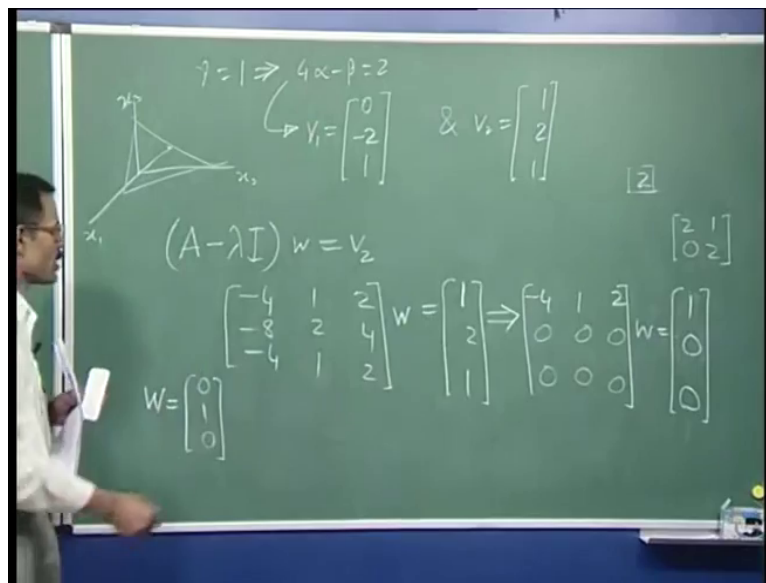 γ = 1 ⇒ 4α - β = 2
V₁ = [0 -2 1] & V₂ = [1 2 1]
x₃
x₂
x₁
[2]
[2 1
0 2]
(A - λI) w = V₂
[-4 1 2
-8 2 4
-4 1 2] W = [1 2 1] ⇒ [-4 1 2
0 0 0
0 0 0] W = [1 0 0]
W = [0 1 0]